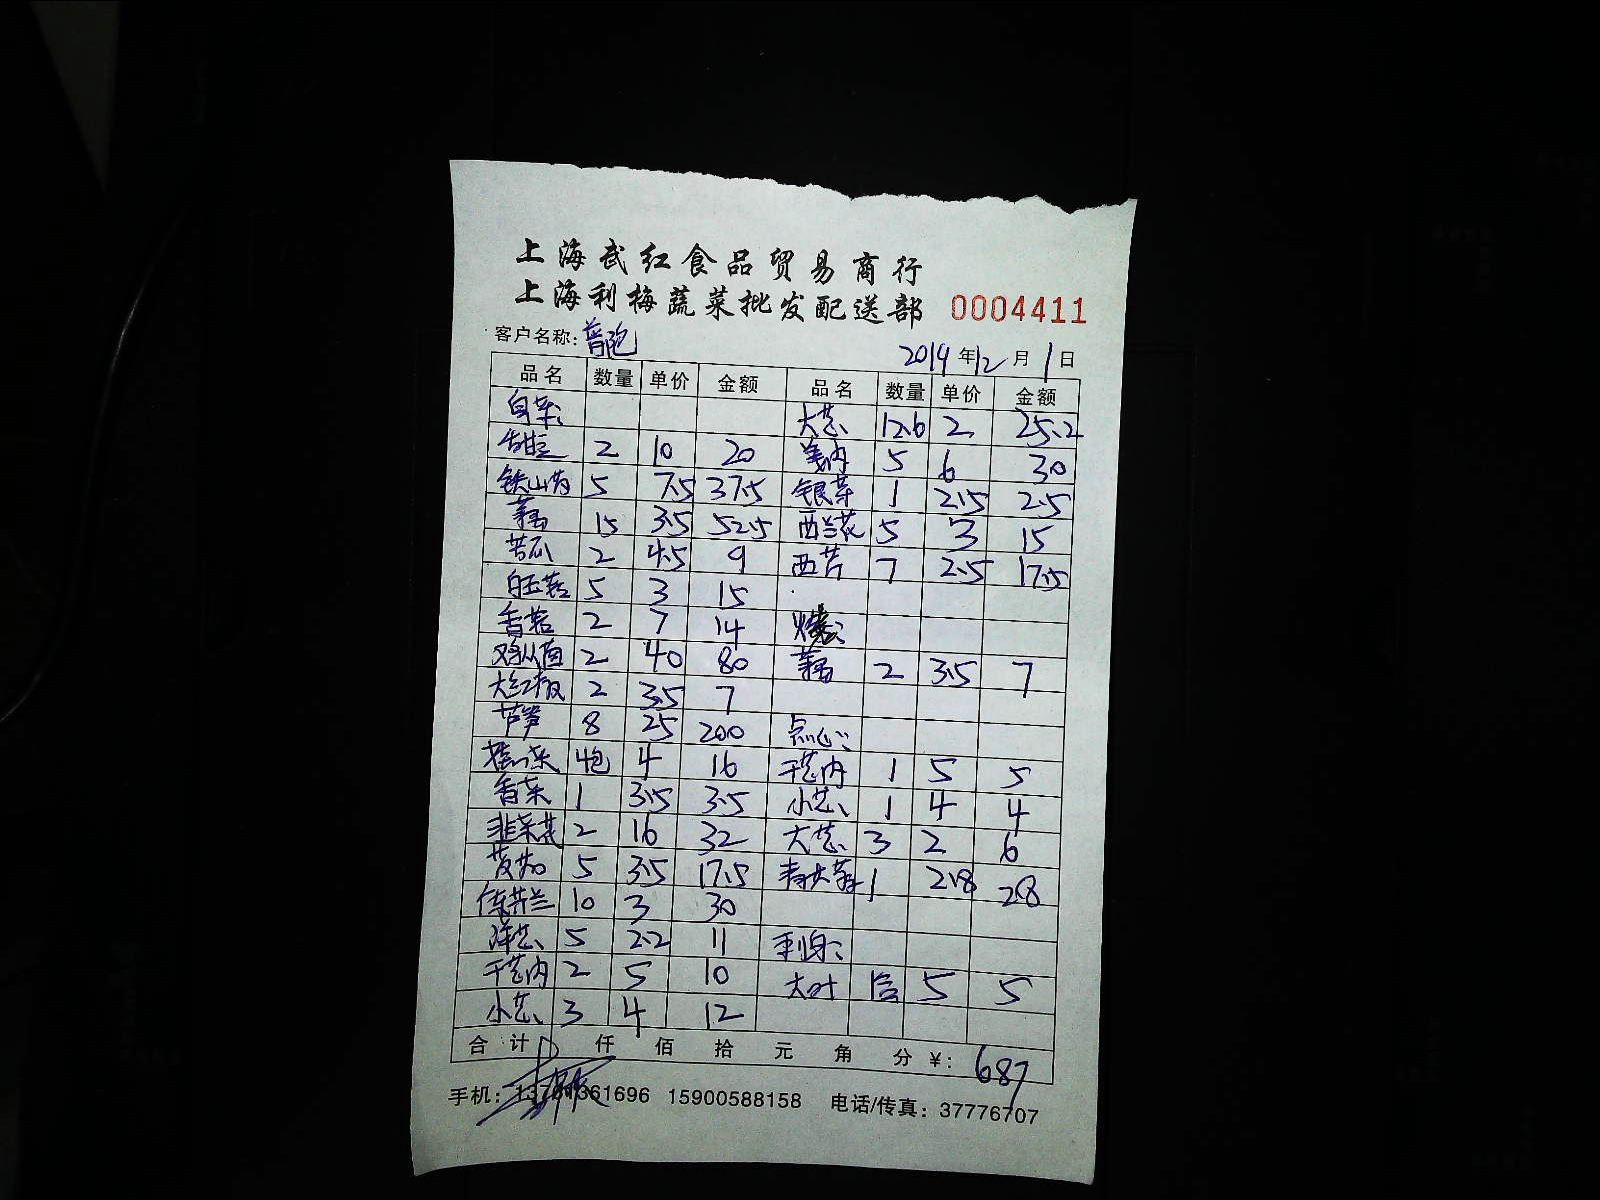 上海武红食品贸易商行
上海利梅蔬菜批发配送部 0004411
客户名称: 2019年12月1日
品名 数量 单价 金额 品名 数量 单价 金额
大芸、 12.6 2 25.2
2 10 20 美内 5 6 30
铁山药 5 7.5 37.5 银芽 1 2.5 2.5
藕 15 3.5 52.5 西兰花 5 3 15
苦瓜 2 4.5 9 西芹 7 2.5 17.5
白玉菇 5 3 15
香菇 2 7 14
鸡从菌 2 40 80 藕 2 3.5 7
大红椒 2 3.5 7
芦笋 8 25 200 点心:
4包 4 16 干芸内 1 5 5
香菜 1 3.5 3.5 小芸、 1 4 4
韭菜花 2 16 32 大芸、 3 2 6
5 3.5 17.5 1 2.8 2.8
10 3 30
洋芸、 5 2.2 11 刺身:
干芸内 2 5 10 大叶 5 5
小芸、 3 4 12
合计 仟 佰 拾 元 角 分 ¥: 687
手机: 13761361696 15900588158 电话/传真: 37776707